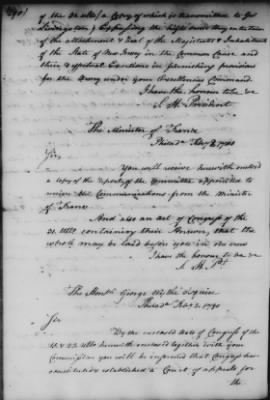 of the 24 ulto (a Copy of which is transmitted to Gov
Livingston) Expressing the high sense they entertain
of the attachment & Zeal of the Magistrates & Inhabitants
of the State of New Jersey in the Common Cause and
their effectual Exertions in furnishing provisions
for the Army under your Excellencies Command
I have the honour to be &c
S. H. President
The Minister of France
Philada Feby 2, 1780
Sir,
You will receive herewith enclosed
a copy of the report of the Committee appointed to
receive the Communications from the Minister
of France
And also an act of Congress of the
31. Ulto containing their Answer, that the
whole may be laid before you in one view
I have the honour to be &c
S. H. Pst.
The Honble George Wythe Esquire
Philada Feby 2. 1780
Sir
By the enclosed Acts of Congress of the
15 & 22 ulto herewith enclosed together with your
Commission you will be informed that Congress have
established a Court of appeals for
the